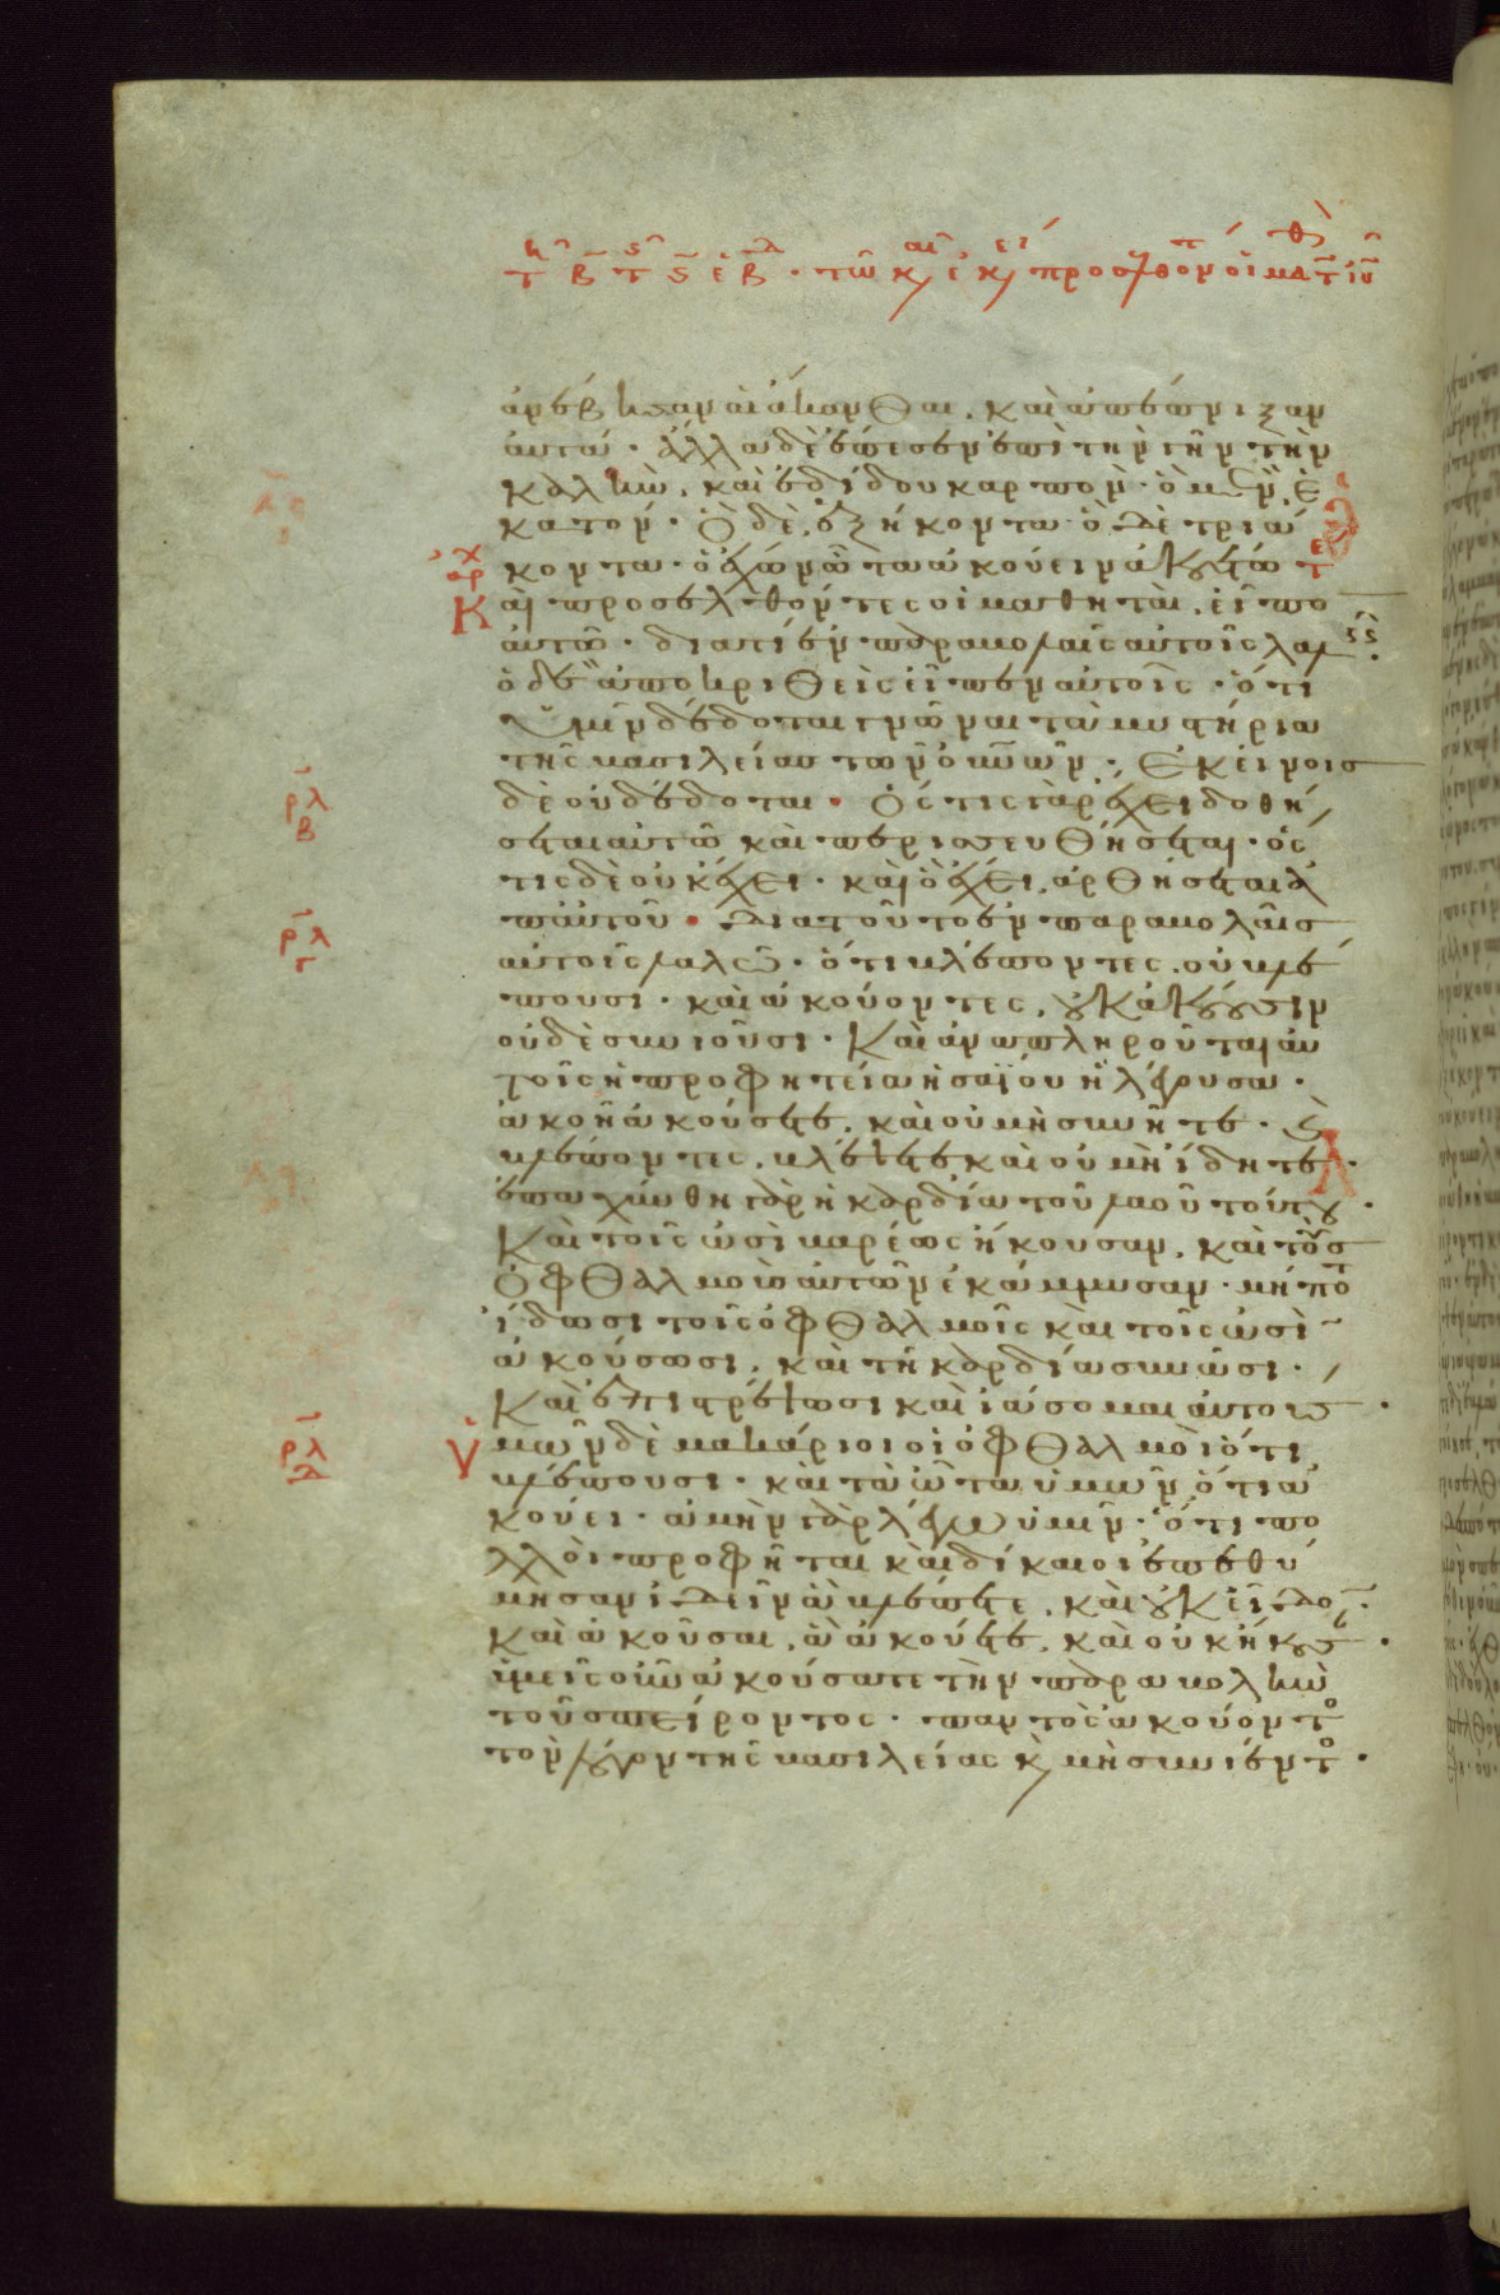 ἀνέβησαν αἱ ἄκανθαι. καὶ ἀπέπνιξαν
αὐτά· ἄλλα δὲ ἔπεσεν ἐπὶ τὴν γῆν τὴν
καλὴν. καὶ ἐδίδου καρπὸν· ὃ μὲν ἑ
κατόν· ὃ δὲ ἑξήκοντα· ὃ δὲ τριά
κοντα· ὁ ἔχων ὦτα ἀκούειν ἀκουέτω
Καὶ προσελθόντες οἱ μαθηταὶ. εἶπο
αὐτῶ· διατί ἐν παραβολαῖς αὐτοῖς λαλεῖς·
ὁ δὲ ἀποκριθεὶς εἶπεν αὐτοῖς· ὅτι
ὑμῖν δέδοται γνῶναι τὰ μυστήρια
τῆς βασιλείας τῶν οὐνῶν· Ἐκείνοις
δὲ οὐ δέδοται· Ὅστις γὰρ ἔχει δοθή
σεται αὐτῶ καὶ περισσευθήσεται· ὅσ
τις δὲ οὐκ ἔχει· καὶ ὃ ἔχει. ἀρθήσεται ἀ
π αὐτοῦ· Διὰ τοῦτο ἐν παραβολαῖς
αὐτοῖς λαλῶ· ὅτι βλέποντες. οὐ βλέ
πουσι· καὶ ἀκούοντες. οὐκ ἀκούουσιν
οὐδὲ συνιοῦσι· Καὶ ἀναπληροῦται αὐ
τοῖς ἡ προφητεία ἡσαΐου ἡ λέγουσα·
ἀκοῆ ἀκούσετε. καὶ οὐ μὴ συνῆτε·
βλέποντες. βλέψετε καὶ οὐ μὴ ἴδητε·
ἐπαχύνθη γὰρ ἡ καρδία τοῦ λαοῦ τούτου·
Καὶ τοῖς ὠσὶ βαρέως ἤκουσαν. καὶ τοὺς
ὀφθαλμοὺς αὐτῶν ἐκάμμυσαν· μήποτ
ἴδωσι τοῖς ὀφθαλμοῖς καὶ τοῖς ὠσὶ
ἀκούσωσι. καὶ τῆ καρδία συνῶσι·
Καὶ ἐπιστρέψωσι καὶ ἰάσομαι αὐτούς·
Ὑμῶν δὲ μακάριοι οἱ ὀφθαλμοὶ ὅτι
βλέπουσι· καὶ τὰ ὦτα ὑμῶν ὅτι ἀ
κούει· ἀμὴν γὰρ λέγω ὑμῖν· ὅτι πο
λλοὶ προφῆται καὶ δίκαιοι ἐπεθύ
μησαν ἰδεῖν ἃ βλέπετε. καὶ οὐκ εἶδον·
Καὶ ἀκοῦσαι. ἃ ἀκούετε. καὶ οὐκ ἤκουσ·
ὑμεῖς οὖν ἀκούσατε τὴν παραβολὴν
τοῦ σπείροντος· παντὸς ἀκούοντο
τὸν λόγον τῆς βασιλείας κ μὴ συνιέντο·
ρλβ
ρλγ
ρλδ